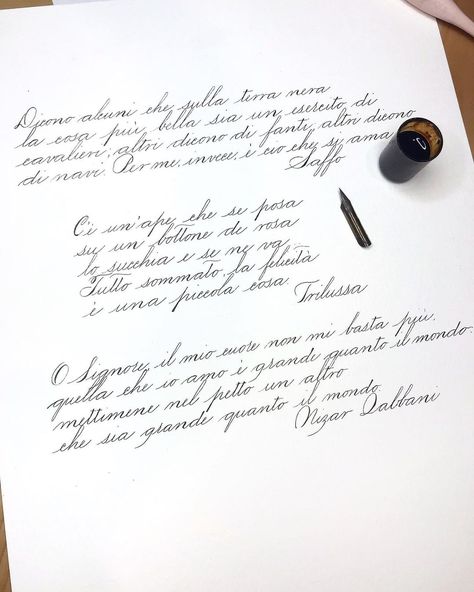 Dicono alcuni che sulla terra nera
la cosa più bella sia un esercito di
cavalieri, altri dicono di fanti, altri dicono
di navi. Per me, invece, è ciò che si ama
Saffo
C'è un'ape che se posa
su un bottone de rosa
lo succhia e se ne va
Tutto sommato, la felicità
è una piccola cosa.
Trilussa
O Signore, il mio cuore non mi basta più,
quella che io amo è grande quanto il mondo.
mettimene nel petto un altro
che sia grande quanto il mondo.
Nizar Qabbani